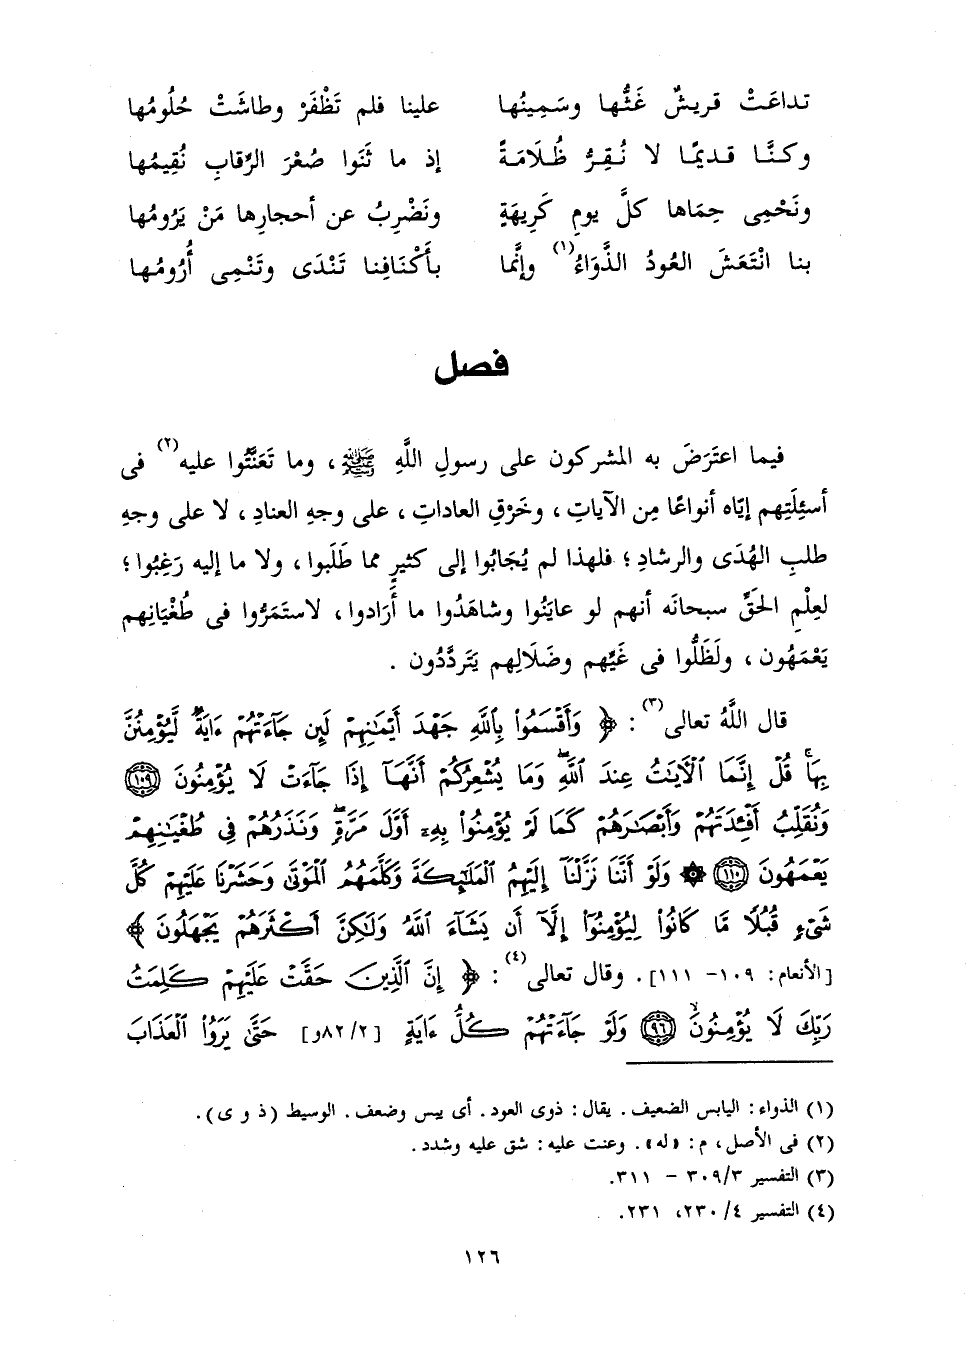 تداعَتْ قريشٌ غَثُّها وسَمِينُها علينا فلم تَظْفَرْ وطاشَتْ حُلُومُها
وكنَّا قديمًا لا نُقِرُّ ظُلَامَةً إذ ما ثَنَوا صُعْرَ الرِّقابِ نُقِيمُها
ونَحْمِى حِمَاها كلَّ يومِ كَرِيهَةٍ ونَضْرِبُ عن أحجارِها مَنْ يَرُومُها
بنا انْتَعَشَ العُودُ الذَّوَاءُ(١) وإنَّما بأَكْنَافِنا تَنْدَى وتَنْمِى أُرُومُها
فصل
فيما اعتَرَضَ به المشركون على رسولِ اللَّهِ ﷺ، وما تَعَنَّتُوا عليه(٢) فى
أسئِلَتِهم إيَّاه أنواعًا مِن الآياتِ، وخَرْقِ العاداتِ، على وجهِ العنادِ، لا على وجهِ
طلبِ الهُدَى والرشادِ؛ فلهذا لم يُجَابُوا إلى كثيرٍ مما طَلَبوا، ولا ما إليه رَغِبُوا؛
لعِلْمِ الحَقِّ سبحانَه أنهم لو عايَنُوا وشاهَدُوا ما أَرَادوا، لاستَمَرُّوا فى طُغْيَانِهم
يَعْمَهُون، ولَظَلُّوا فى غَيِّهم وضَلَالِهم يَتَردَّدُون.
قال اللَّهُ تعالى(٣): ﴿وَأَقْسَمُوا۟ بِٱللَّهِ جَهْدَ أَيْمَٰنِهِمْ لَئِن جَآءَتْهُمْ ءَايَةٌ لَّيُؤْمِنُنَّ
بِهَا ۚ قُلْ إِنَّمَا ٱلْـَٔايَٰتُ عِندَ ٱللَّهِ ۖ وَمَا يُشْعِرُكُمْ أَنَّهَآ إِذَا جَآءَتْ لَا يُؤْمِنُونَ ١٠٩
وَنُقَلِّبُ أَفْـِٔدَتَهُمْ وَأَبْصَٰرَهُمْ كَمَا لَمْ يُؤْمِنُوا۟ بِهِۦٓ أَوَّلَ مَرَّةٍ ۖ وَنَذَرُهُمْ فِى طُغْيَٰنِهِمْ
يَعْمَهُونَ ١١٠ ۞ وَلَوْ أَنَّنَا نَزَّلْنَآ إِلَيْهِمُ ٱلْمَلَٰٓئِكَةَ وَكَلَّمَهُمُ ٱلْمَوْتَىٰ وَحَشَرْنَا عَلَيْهِمْ كُلَّ
شَىْءٍ قُبُلًا مَّا كَانُوا۟ لِيُؤْمِنُوٓا۟ إِلَّآ أَن يَشَآءَ ٱللَّهُ وَلَٰكِنَّ أَكْثَرَهُمْ يَجْهَلُونَ﴾
[الأنعام: ١٠٩- ١١١]. وقال تعالى(٤): ﴿إِنَّ ٱلَّذِينَ حَقَّتْ عَلَيْهِمْ كَلِمَتُ
رَبِّكَ لَا يُؤْمِنُونَ ۙ ٩٦ وَلَوْ جَآءَتْهُمْ كُلُّ ءَايَةٍ [٨٢/٢و] حَتَّىٰ يَرَوُا۟ ٱلْعَذَابَ
(١) الذواء: اليابس الضعيف. يقال: ذوى العود. أى يبس وضعف. الوسيط (ذ و ى).
(٢) فى الأصل، م: «له». وعنت عليه: شق عليه وشدد.
(٣) التفسير ٣٠٩/٣ - ٣١١.
(٤) التفسير ٢٣٠/٤، ٢٣١.
١٢٦